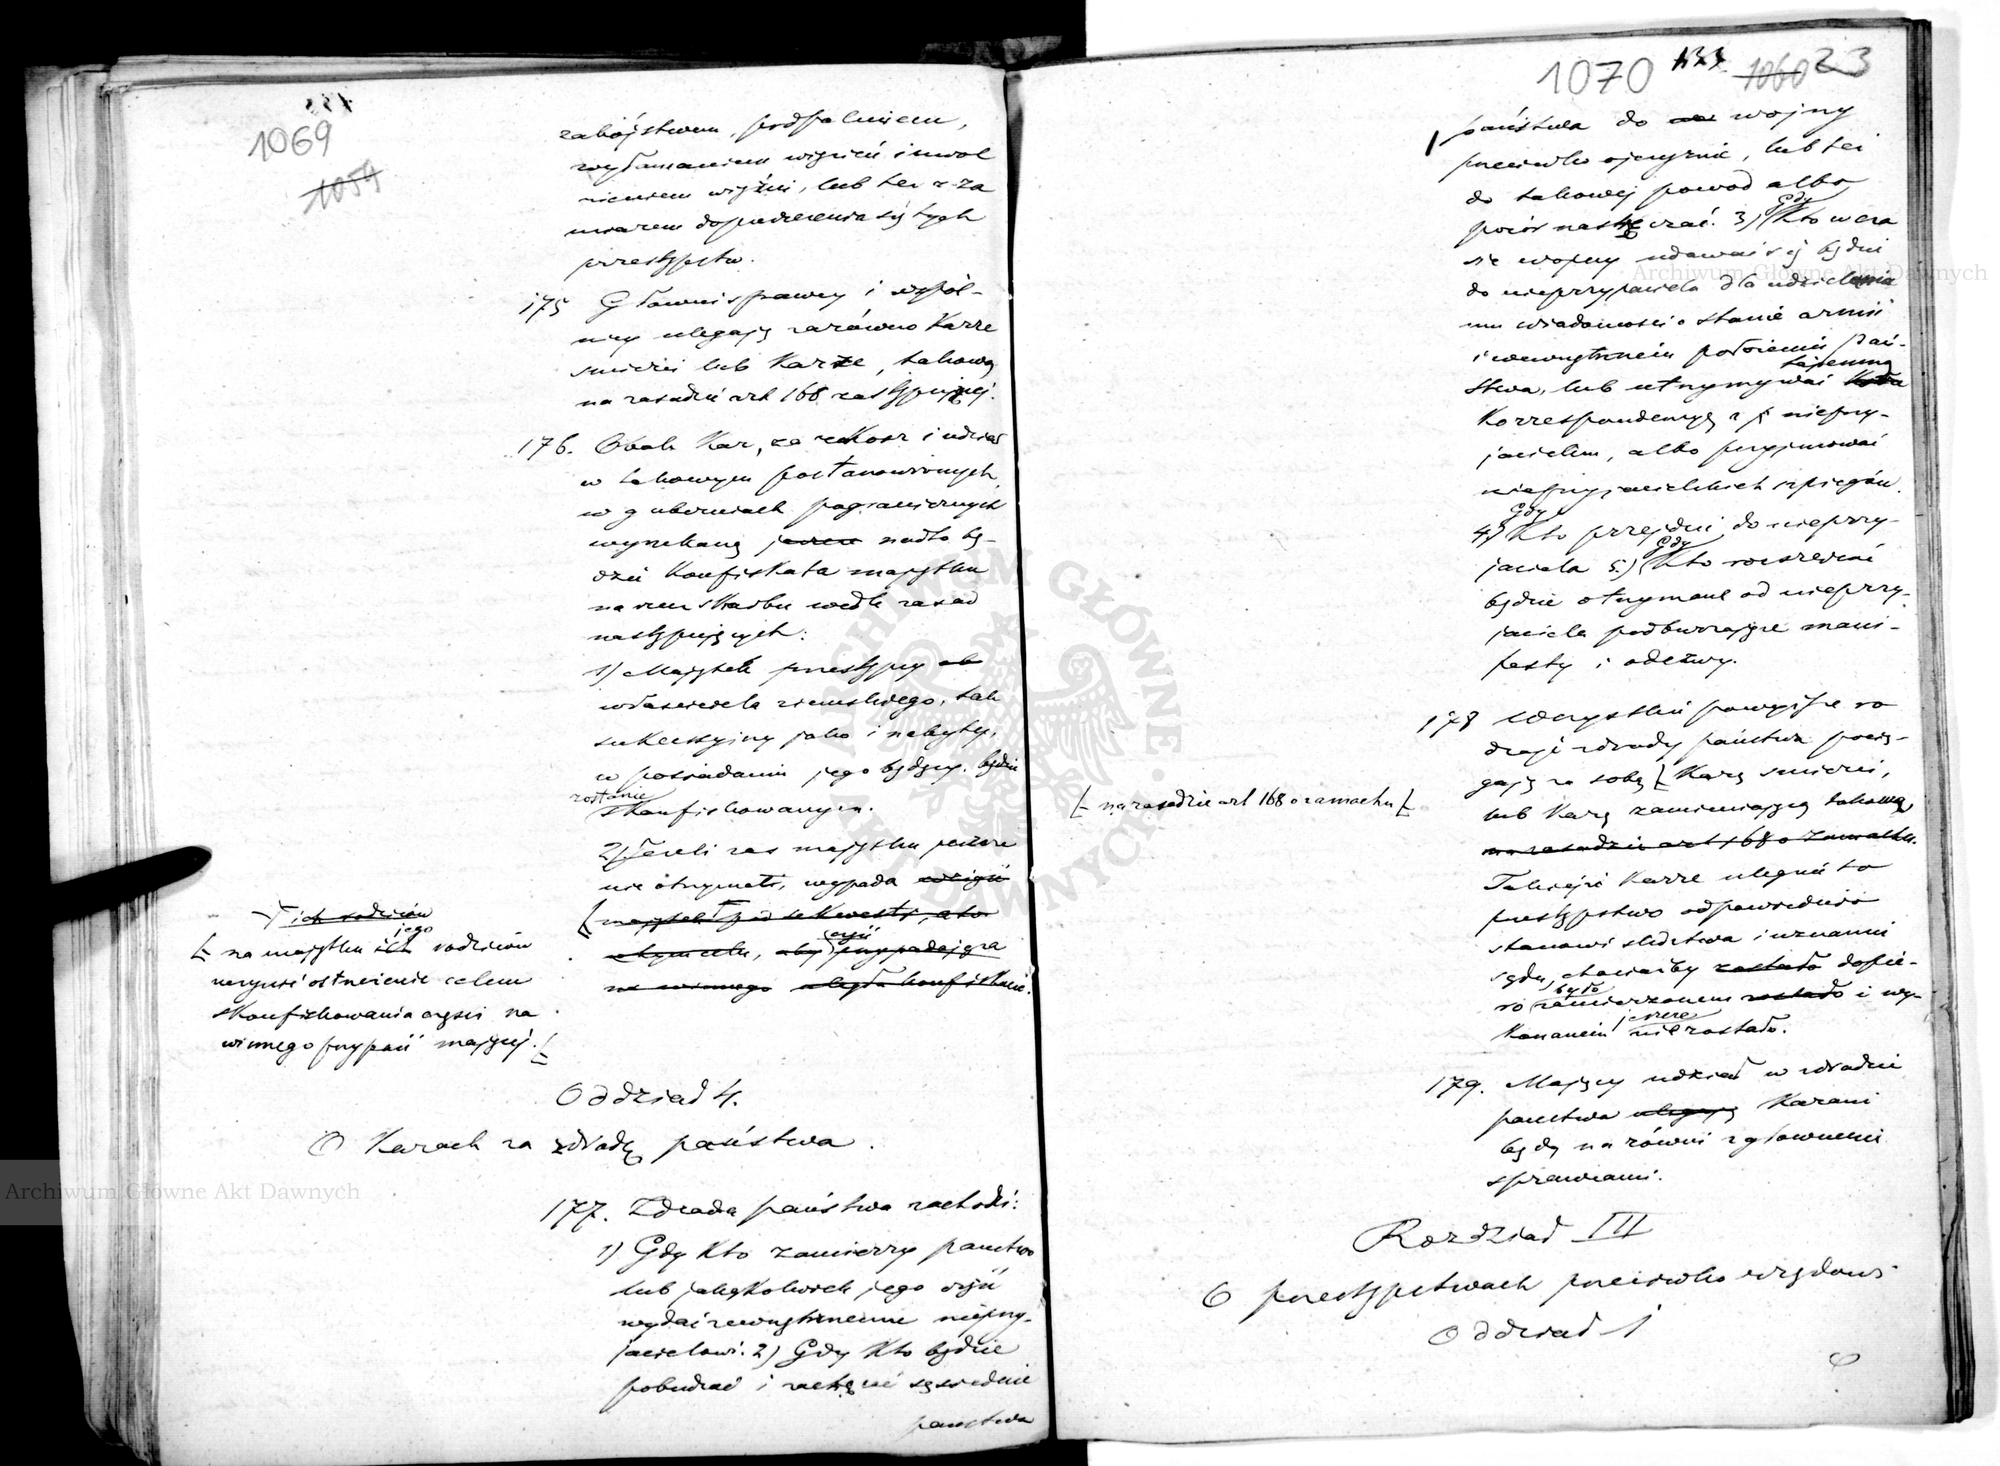 1069
1054
zabójstwem, podpaleniem,
wyłamaniem więzień i uwol
nieniem więźni, lub też z za
miarem dopuszczenia się tych
przestępstw.
175 Główni sprawcy i wspól-
nicy ulegają zarówno Karze
śmierci lub Karze, takową
na zasadzie art 168 zastępującej.
176. Obok Kar, za rokosz i udział
w takowym postanowionych,
w guberniach pogranicznych
wyrzekaną jeszcze nadto bę-
dzie Konfiskata majątku
na rzecz skarbu wedle zasad
następujących:
1) Majątek przestępcy ob
właściciela ziemskiego, tak
sukcesyjny jako i nabyty,
w posiadaniu jego będący, będzie
zostanie
skonfiskowanym.
2) Jeżeli zaś majątku jeszcze
nie otrzymał, wypada wziąść
majątek pod sekwestr, a to
w tym celu, aby część przypadająca
na winnego uległa konfiskacie.
ich rodziców
jego
na majątku ich rodziców
uczynić ostrzeżenie celem
skonfiskowania części na
winnego przypaść mającej.
Oddział 4.
O Karach za zdradę państwa.
177. Zdrada państwa zachodzi:
1) Gdy Kto zamierzy państwo
lub jakąkolwiek jego część
wydać zewnętrznemu nieprzy-
jacielowi. 2) Gdy Kto będzie
pobudzać i zachęcać sąsiednie
państwa
1070 133 1060 23
państwa do wojny
przeciwko ojczyznie, lub też
do takowej powód albo
Gdy
pozór nastręczać. 3) Kto w cza
sie wojny udawać się będzie
do nieprzyjaciela dla udzielenia
mu wiadomości o stanie armii
i wewnętrznem położeniu Pań-
tajemną
stwa, lub utrzymywać
Korrespondencyą z nieprzy-
jacielem, albo przyjmować
nieprzyjacielskich szpiegów.
Gdy
4) Kto przejdzie do nieprzy-
Gdy
jaciela 5) Kto rozszerzać
będzie otrzymane od nieprzy-
jaciela podburzające mani-
festy i odezwy.
178 Wszystkie powyższe ro
dzaje zdrady państwa pocią-
gają za sobą Karę śmierci,
na zasadzie art 168 o zamachu
lub Karę zamieniającą takową,
na zasadzie art 168 o zamachu.
Takiejże Karze ulegnie to
przestępstwo odpowiednio
stanowi śledztwa i uznaniu
sądu, chociażby zostało dopie-
było
ro zamierzonem zostało i wy-
jeszcze
Konanem nie zostało.
179. Mający udział w zdradzie
państwa ulegają Karani
będą na równi z głównemi
sprawcami.
Rozdział III
O przestępstwach przeciwko rządowi
Oddział 1
Archiwum Główne Akt Dawnych
Archiwum Główne Akt Dawnych
ARCHIWUM GŁÓWNE AKT DAWNYCH